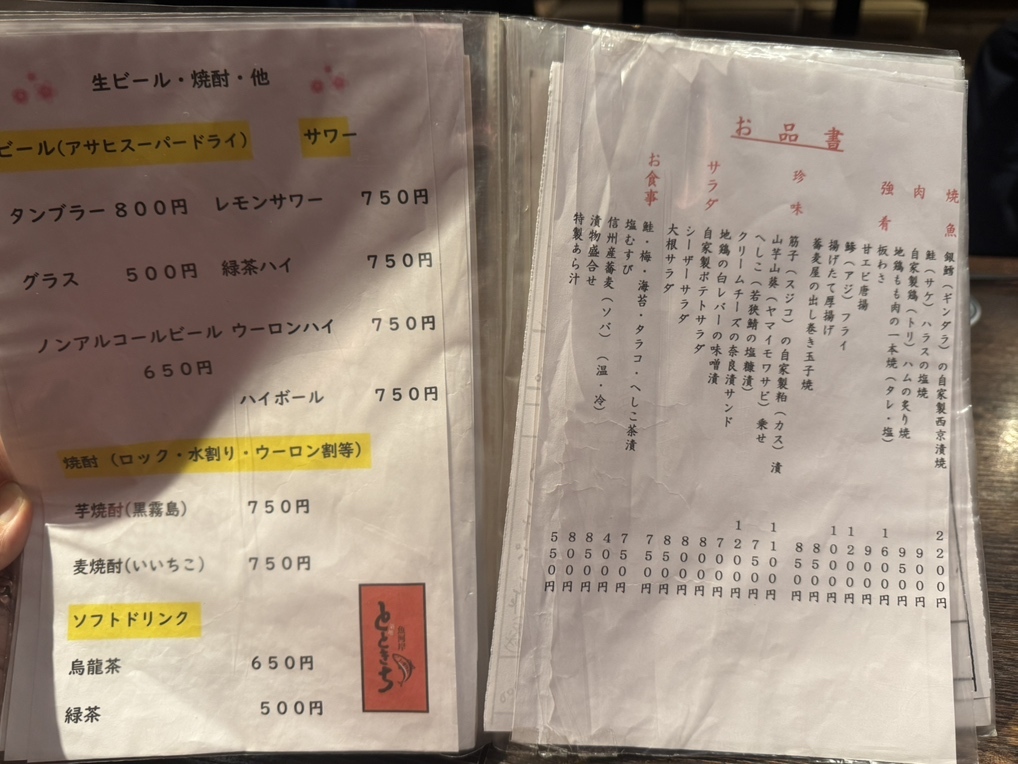 生ビール・焼酎・他
ビール(アサヒスーパードライ) サワー
タンブラー 800円 レモンサワー 750円
グラス 500円 緑茶ハイ 750円
ノンアルコールビール ウーロンハイ 750円
650円
ハイボール 750円
焼酎 (ロック・水割り・ウーロン割等)
芋焼酎(黒霧島) 750円
麦焼酎(いいちこ) 750円
ソフトドリンク
烏龍茶 650円
緑茶 500円
とときち
お品書
焼魚
銀鱈(ギンダラ)の自家製西京漬焼 2200円
鮭(サケ)ハラスの塩焼 900円
肉
自家製鶏(トリ)ハムの炙り焼 950円
地鶏もも肉の一本焼(タレ・塩) 1600円
強肴
板わさ 900円
甘エビ唐揚 1200円
鯵(アジ)フライ 1000円
揚げたて厚揚げ 850円
蕎麦屋の出し巻き玉子焼 850円
珍味
筋子(スジコ)の自家製粕(カス)漬 1100円
山芋山葵(ヤマイモワサビ)乗せ 750円
へしこ(若狭鯖の塩糠漬) 1200円
クリームチーズの奈良漬サンド 700円
地鶏の白レバーの味噌漬 800円
サラダ
自家製ポテトサラダ 800円
シーザーサラダ 850円
大根サラダ 750円
お食事
鮭・梅・海苔・タラコ・へしこ茶漬 750円
塩むすび 400円
信州産蕎麦(ソバ)(温・冷) 850円
漬物盛合せ 800円
特製あら汁 550円